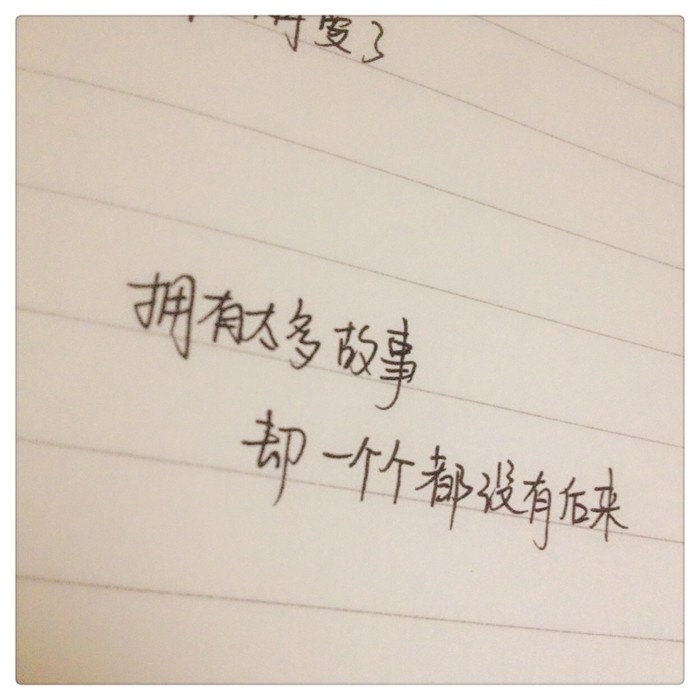 再爱了
拥有太多故事
却一个个都没有后来